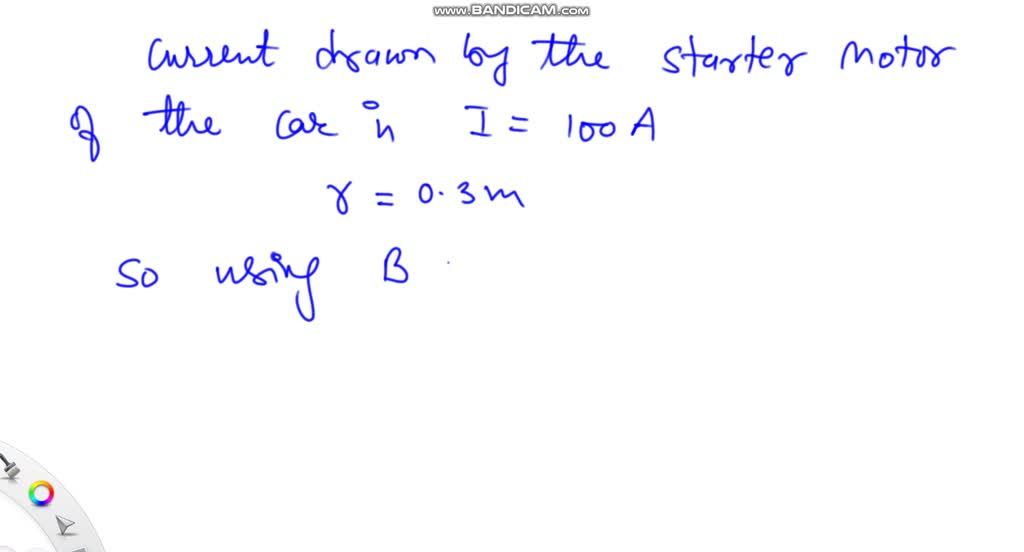 www.BANDICAM.com
Current drawn by the starter motor
of the car is I = 100 A
r = 0.3 m
So using B